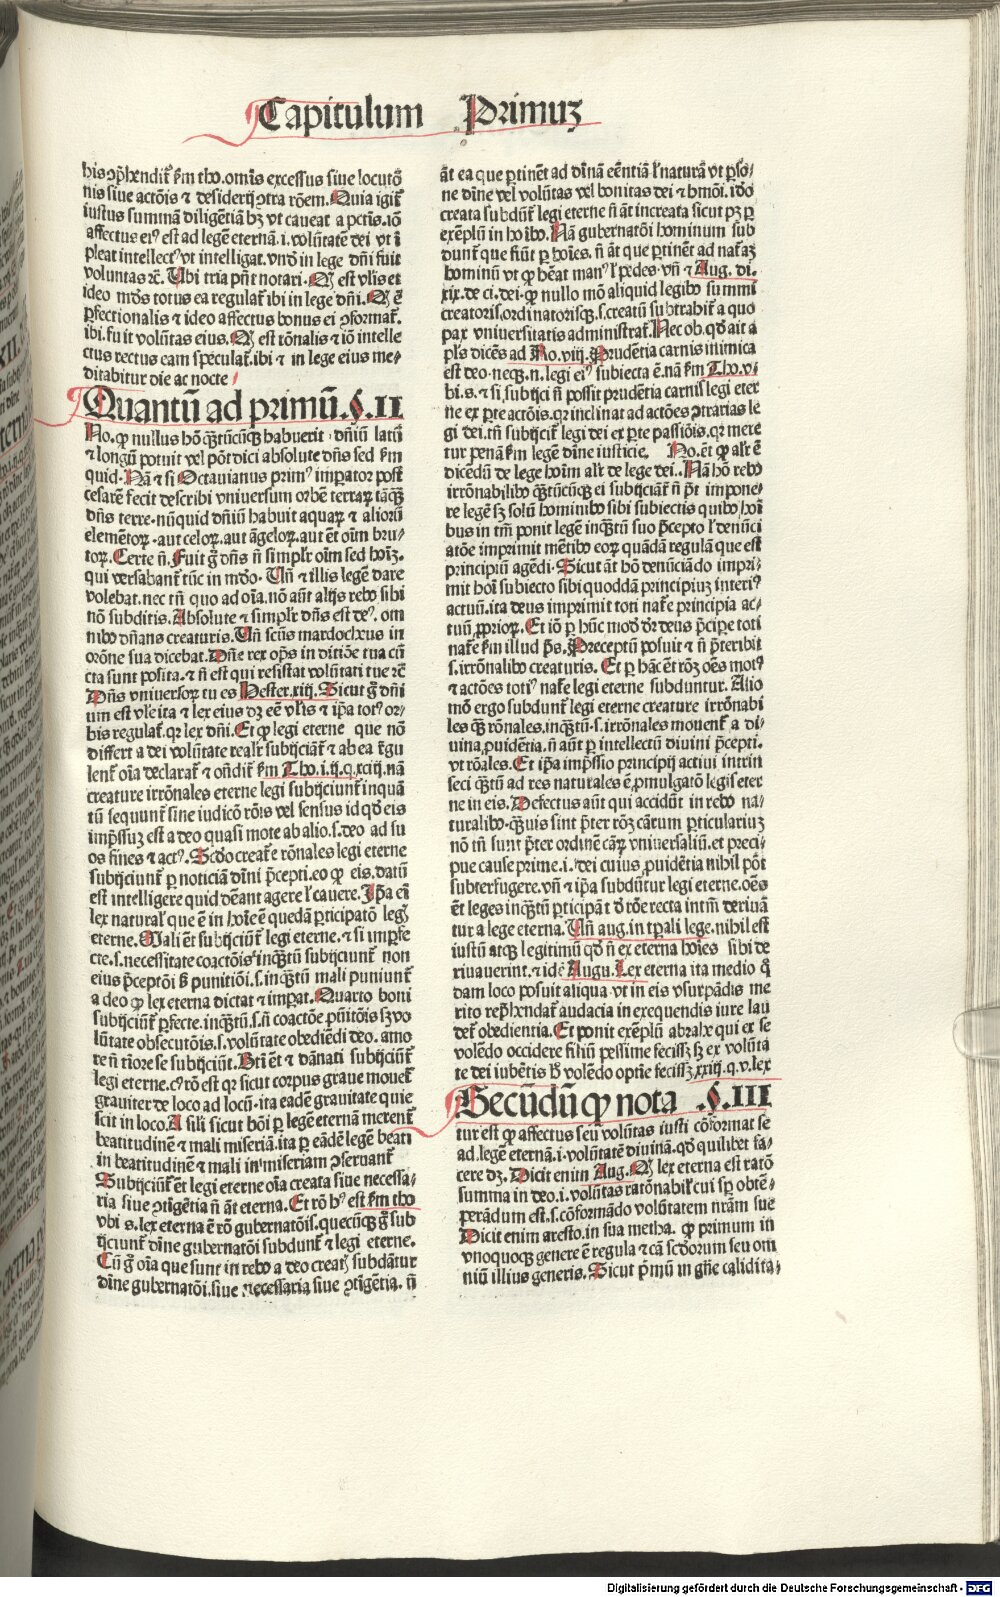 Capitulum Primuz
his cōp̄hendit̄ ẜm tho. omīs excessus siue locutō
nis siue actōis ⁊ desiderij ↄtra rōem. Quia igit̄
iustus summā diligētiā hȝ vt caueat a pctīs. iō
affectus eiꝰ est ad legē eternā .i. volūtatē dei vt ī
pleat intellectꝰ vt intelligat. vnd̓ in lege dn̄i fuit
voluntas ꝛc̄. Ubi tria pn̄t notari. Qꝫ est vl̓is et
ideo mōs totus ea regulat̄ ibi in lege dn̄i. Qꝫ ē
ꝑfectionalis ⁊ ideo affectus bonus ei ↄformat̄.
ibi. fuit volūtas eius. Qꝫ est rōnalis ⁊ iō intelle
ctus rectus eam speculat̄. ibi ⁊ in lege eius me⸗
ditabitur die ac nocte
Quantū ad primū. §. II
No. ꝙ nullus hō q̄ꝫtūcūqꝫ habuerit dn̄iū latū
⁊ longū potuit vel pōt dici absolute dn̄s sed ẜm
quid. Nā ⁊ si Octauianus primꝰ imꝑator post
cesarē fecit describi vniuersum orbē terraꝝ tāqꝫ
dn̄s terre. nūquid dn̄iū habuit aquaꝝ ⁊ alioꝝ
elementoꝝ. aut celoꝝ. aut āgeloꝝ. aut ēt oīm bru⸗
toꝝ. Certe n̄. Fuit g̊ dn̄s n̄ simpl̓r oīm sed hoīȝ.
qui versabant̄ tūc in mūdo. Un̄ ⁊ illis legē dare
volebat. nec tn̄ quo ad oīa. nō aūt alijs rebꝰ sibi
nō subditis. Absolute ⁊ simpl̓r dn̄s est deꝰ. om
nibꝰ dn̄ans creaturis. Un̄ scūs mardocheus in
orōne sua dicebat. Dn̄e rex oꝑs in ditiōe tua cū
cta sunt posita. ⁊ n̄ est qui resistat volūtati tue ꝛc̄
Dn̄s vniuersoꝝ tu es Hester. xiij. Sicut g̊ dn̄i
um est vl̓e ita ⁊ lex eius dȝ eē vl̓is ⁊ ip̄a totꝰ or⸗
bis regulat̄. qꝛ lex dn̄i. Et ꝙ legi eterne que nō
differt a dei volūtate real̓r subijciāt̄ ⁊ ab ea regu
lent̄ oīa declarat̄ ⁊ on̄dit̄ ẜm Tho. i. ij. q. xciij. nā
creature irrōnales eterne legi subijciunt̄ inquā
tū sequunt̄ sine iudicō rōis vel sensus id qd̓ eis
imp̄ssuȝ est a deo quasi mote ab alio. s. deo ad su
os fines ⁊ actꝰ. Scd̓o creat̄e rōnales legi eterne
subijciunt̄ ꝑ noticiā dīni p̄cepti. eo ꝙ eis. datū
est intelligere quid deāt agere l̓ cauere. Ip̄a eī
lex natural̓ que ē in hoīe ē quedā ꝑticipatō legꝭ
eterne. Mali ēt subijciūt̄ legi eterne. ⁊ si imꝑfe
cte. s. necessitate coactōis inq̄ꝫtū subijciunt̄ non
eius p̄ceptōi ẞ punitiōi. s. inq̄ꝫtū mali puniunt̄
a deo ꝙ lex eterna dictat ⁊ imꝑat. Quarto boni
subijciūt̄ ꝑfecte. inq̄ꝫtū. s. n̄ coactōe pūitōis sȝ vo
lūtate obsecutōis. s. volūtate obediēdi deo. amo
re n̄ tīore se subijciūt̄. Btī ēt ⁊ dānati subijciūt̄
legi eterne. cꝰ rō est qꝛ sicut corpus graue mouet̄
grauiter de loco ad locū. ita eadē grauitate quie
scit in loco. A sīli sicut boī ꝑ legē eternā merent̄
beatitudinē ⁊ mali miseriā. ita ꝑ eādē legē beati
in beatitudinē ⁊ mali in miseriam ↄseruant̄
Subijciūt̄ ēt legi eterne oīa creata siue necessa⸗
ria siue ↄtīgētia n̄ āt eterna. Et rō hꝰ est ẜm tho
vbi s. lex eterna ē rō gubernatōis. quecūqꝫ g̊ sub
ijciunt̄ dīne gubernatōi subdunt̄ ⁊ legi eterne.
Cū g̊ oīa que sunt in rebꝰ a deo creatꝭ subdātur
dīne gubernatōi. siue necessaria siue ↄtīgētia. n̄
āt ea que ꝑtinēt ad dīnā eēntiā l̓ naturā vt ꝑso⸗
ne dīne vel volūtas vel bonitas dei ⁊ hmōi. idō
creata subdūt̄ legi eterne n̄ āt increata sicut pȝ ꝑ
exēplū in hoībꝰ. Nā gubernatōi hominum sub
dunt̄ que fiūt ꝑ hoīes. n̄ āt que ꝑtinēt ad naťaȝ
hominū vt ꝙ hēat manꝰ l̓ pedes. vn̄ ⁊ Aug. di.
xix. de ci. dei. ꝙ nullo mō aliquid legibꝰ summi
creatoris. ordinatorisqꝫ. s. creatū subtrahit̄ a quo
pax vniuersitatis administrat̄. Nec ob. qd̓ ait a
pl̓s dicēs ad Ro. viij. Prudētia carnis inimica
est deo. neqꝫ. n. legi eiꝰ subiecta ē. nā ẜm Tho. v⸗
bi. s. ⁊ si subijci n̄ possit prudētia carnis legi eter
ne ex ꝑte actōis. qꝛ inclinat ad actōes ↄtrarias le
gi dei. tn̄ subijcit̄ legi dei ex ꝑte passiōis. qꝛ mere
tur penā ẜm legē dīne iusticie. No. ēt ꝙ al̓r ē
dicēdū de lege hoīm al̓r de lege dei. Nā hō rebꝰ
irrōnabilibꝰ q̄ꝫtūcūqꝫ ei subijciāt̄ n̄ pōt impone⸗
re legē sȝ solū hominibꝰ sibi subiectis quibꝰ hoī
bus in tm̄ ponit legē inq̄ꝫtū suo p̄cepto l̓ denūci
atōe imprimit mētibꝰ eoꝝ quādā regulā que est
principiū agēdi. Sicut āt hō denūciādo impri⸗
mit hoī subiecto sibi quoddā principiuȝ interiꝰ
actuū. ita deus imprimit toti naťe principia ac⸗
tuū ꝓprioꝝ. Et iō ꝑ hūc modū dr̄ deus p̄cipe toti
naťe ẜm illud p̄s. Preceptū posuit ⁊ n̄ p̄teribit
s. irrōnalibꝰ creaturis. Et ꝑ hāc ēt rōȝ oēs motꝰ
⁊ actōes totiꝰ naťe legi eterne subduntur. Alio
mō ergo subdunt̄ legi eterne creature irrōnabi
les q̄ꝫ rōnales. inq̄ꝫtū. s. irrōnales mouent̄ a di⸗
uina ꝓuidētia. n̄ aūt ꝑ intellectū diuini p̄cepti.
vt rōales. Et ip̄a imp̄ssio principij actiui intrin
seci q̄ꝫtū ad res naturales ē ꝓmulgatō legis eter
ne in eis. Defectus aūt qui accidūt in rebꝰ na⸗
turalibꝰ. q̄ꝫuis sint p̄ter rōȝ cāruꝫ ꝑticulariuȝ
nō tn̄ sunt p̄ter ordinē cāꝝ vniuersaliū. et preci⸗
pue cause prime. i. dei cuius ꝓuidētia nihil pōt
subterfugere. vn̄ ⁊ ip̄a subdūtur legi eterne. oēs
ēt leges inq̄ꝫtū ꝑticipāt d̓ rōe recta intm̄ deriuā
tur a lege eterna. Un̄ aug. in tꝑali lege. nihil est
iustū atqꝫ legitimū qd̓ n̄ ex eterna hoīes sibi de
riuauerint. ⁊ idē Augu. Lex eterna ita medio q̊
dam loco posuit aliqua vt in eis vsurpādis me
rito rep̄hendat̄ audacia in exequendis iure lau
det̄ obedientia. Et ponit exēplū abrahe qui ex se
volēdo occidere filiū pessime fecissȝ sȝ ex volūta
te dei iubētis hꝰ volēdo optīe fecissȝ. xxiij. q. v. lex
Secūdū ꝙ nota .§. III
tur est ꝙ affectus seu volūtas iusti cōformat se
ad. legē eternā. i. volūtatē diuinā. qd̓ quilibet fa⸗
cere dȝ. Dicit enim Aug. Qꝫ lex eterna est ratō
summa in deo. i. volūtas ratōnabil̓ cui sp̄ obtē⸗
ꝑerādum est. s. cōformādo volūtatem nr̄am sue
Dicit enim aresto. in sua metha. ꝙ primum in
vnoquoqꝫ genere ē regula ⁊ cā scd̓orum seu om
niū illius generis. Sicut p̄mū in gn̄e calidita⸗
Digitalisierung gefördert durch die Deutsche Forschungsgemeinschaft - DFG